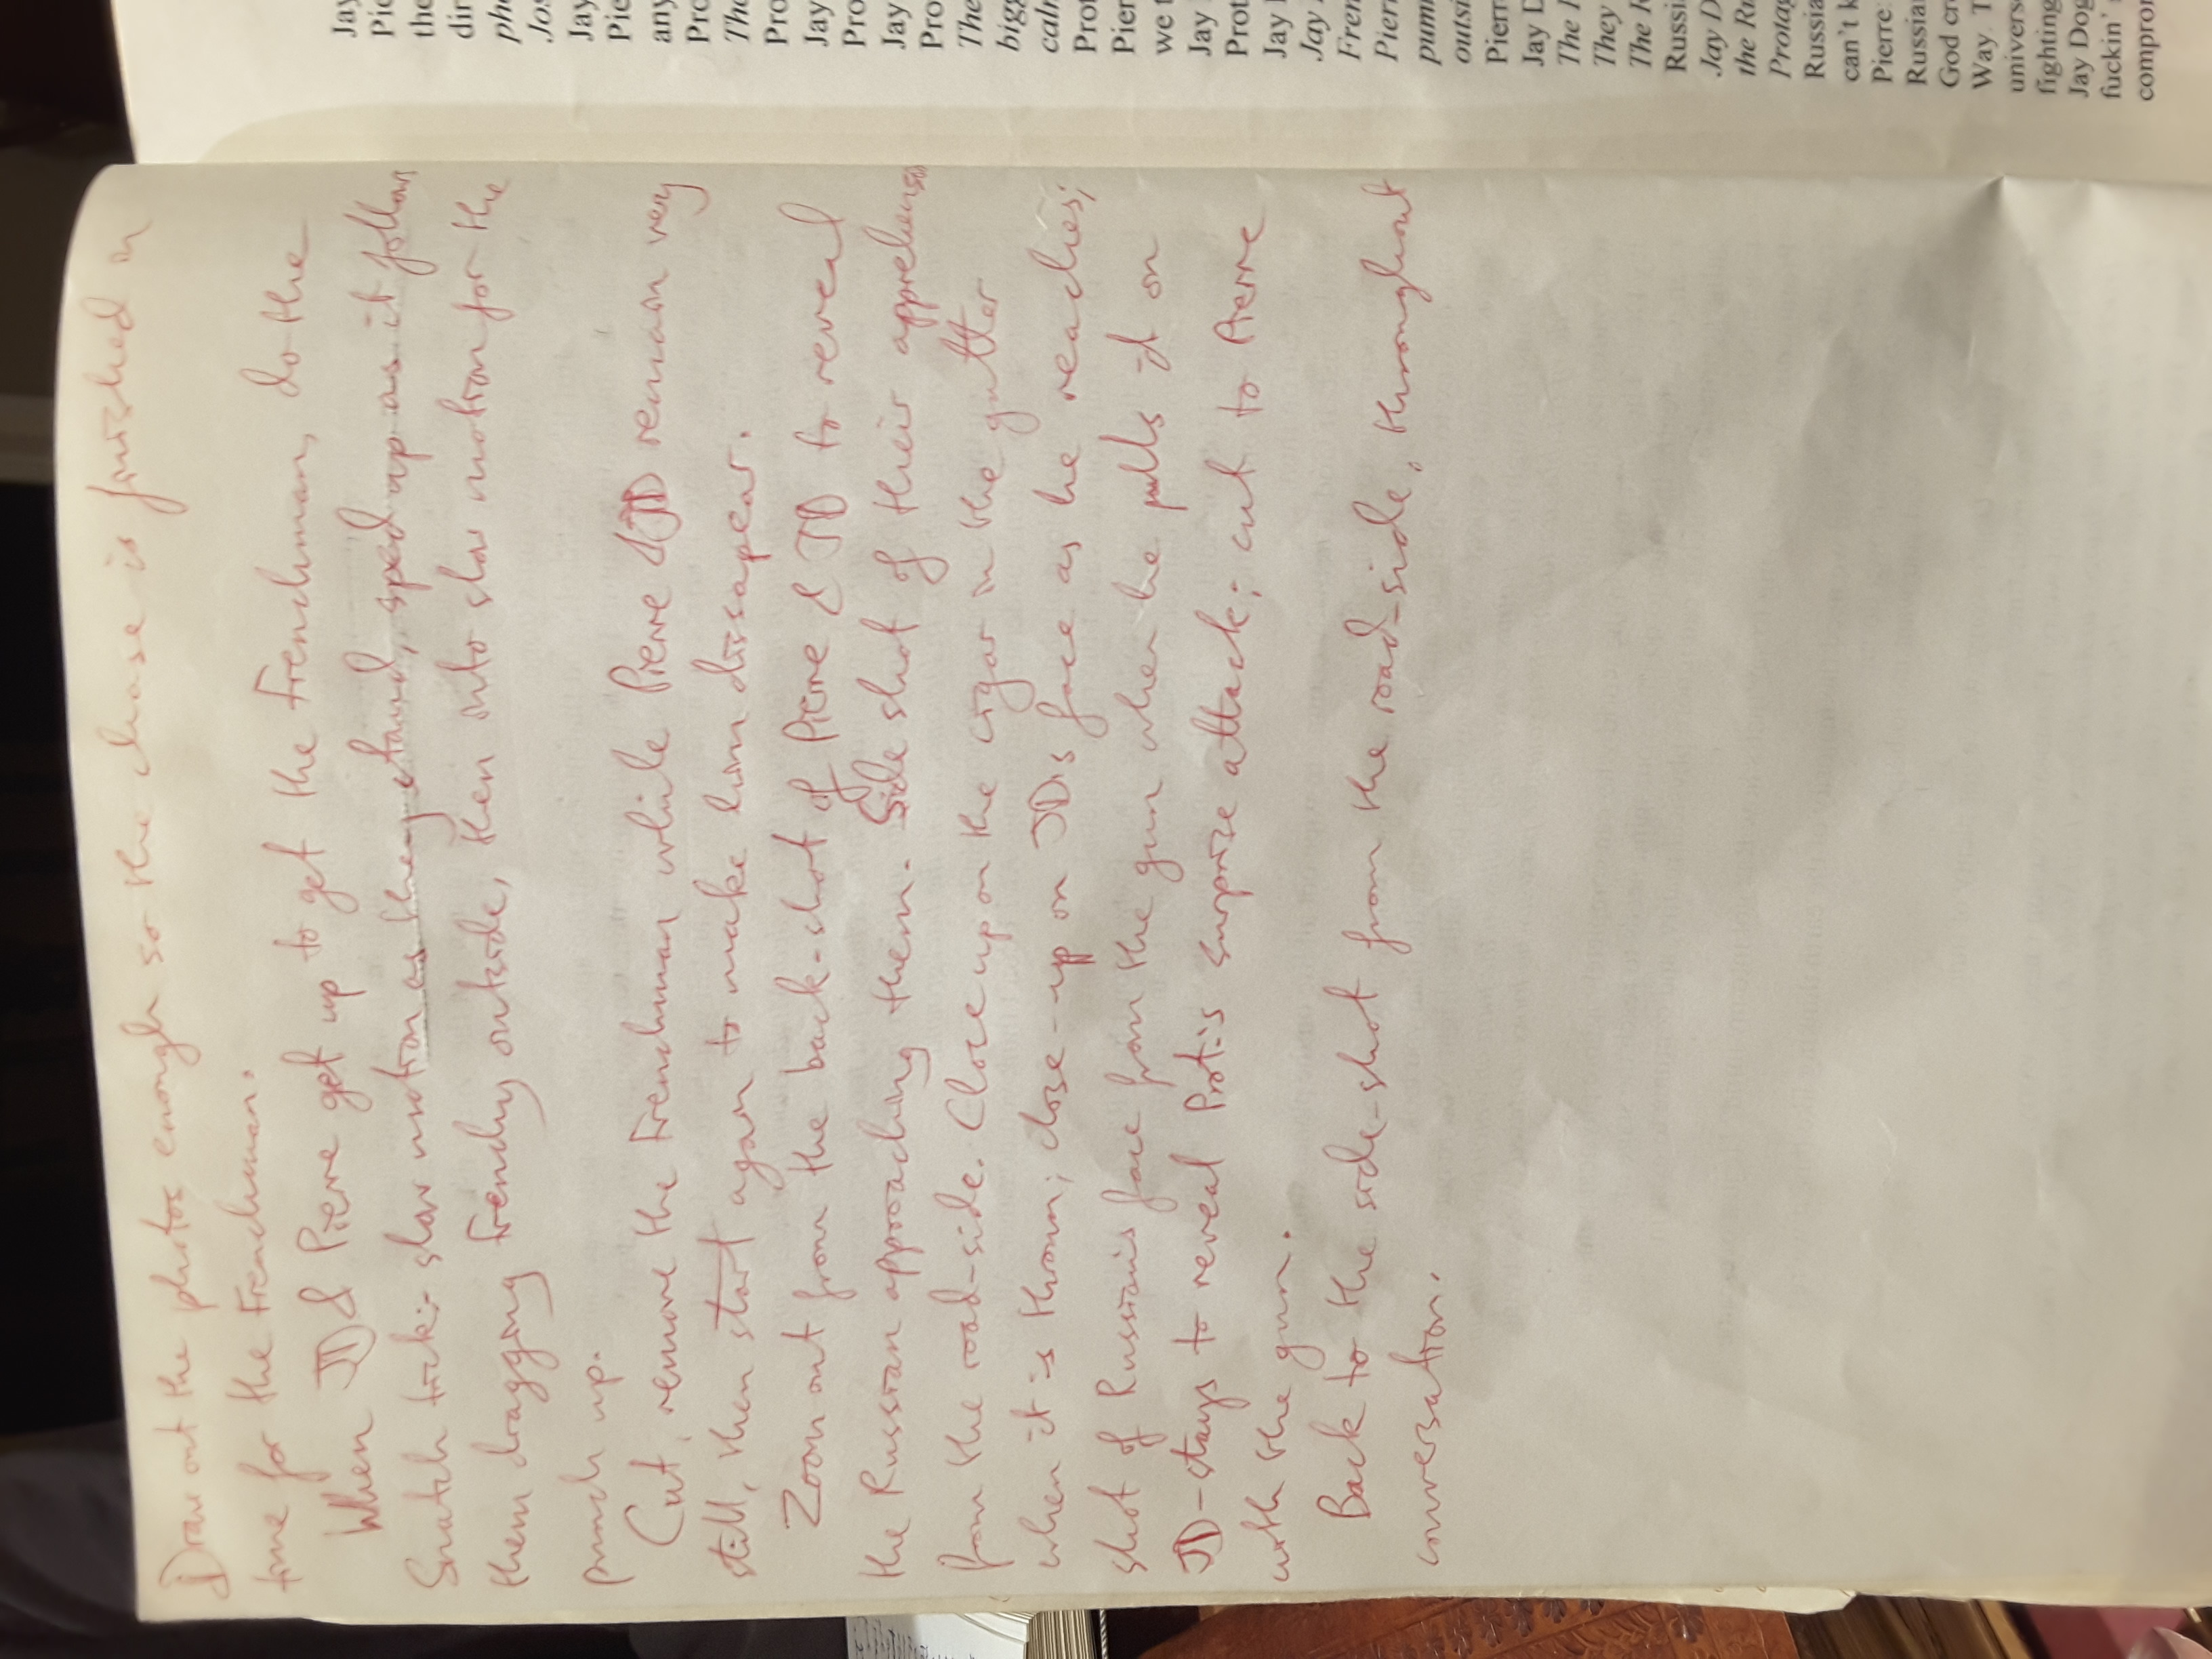 Draw out the photos enough so the chase is finished in
time for the Frenchman.
When JD & Pierre get up to get the Frenchman, do the
Snatch trick:- slow motion as they stand, sped up as it follows
them dragging Frenchy outside, then into slow motion for the
punch up.
Cut, remove the Frenchman while Pierre & JD remain very
still, then start again to make him dissapear.
Zoom out from the back-shot of Pierre & JD to reveal
the Russian approaching them. Side shot of their apprehension
from the road-side. Close up on the cigar in the gutter
when it is thrown; close-up on JD's face as he reaches;
shot of Russian's face from the gun when he pulls it on
JD - stays to reveal Prot's surprise attack; cut to Pierre
with the gun.
Back to the side-shot from the road-side, throughout
conversation.
Jay
Pie
the
dir
pho
Jos
Jay
Pie
any
Pro
The
Pro
Jay
Pro
Jay
Pro
The
bigg
calm
Prot
Pier
we t
Jay
Prot
Jay
Jay
Fren
Pierr
pum
outsi
Pierr
Jay D
The
They
The R
Russi
Jay D
the Ru
Protag
Russia
can't k
Pierre
Russia
God cr
Way. T
univers
fighting
Jay Dog
fuckin'
compro